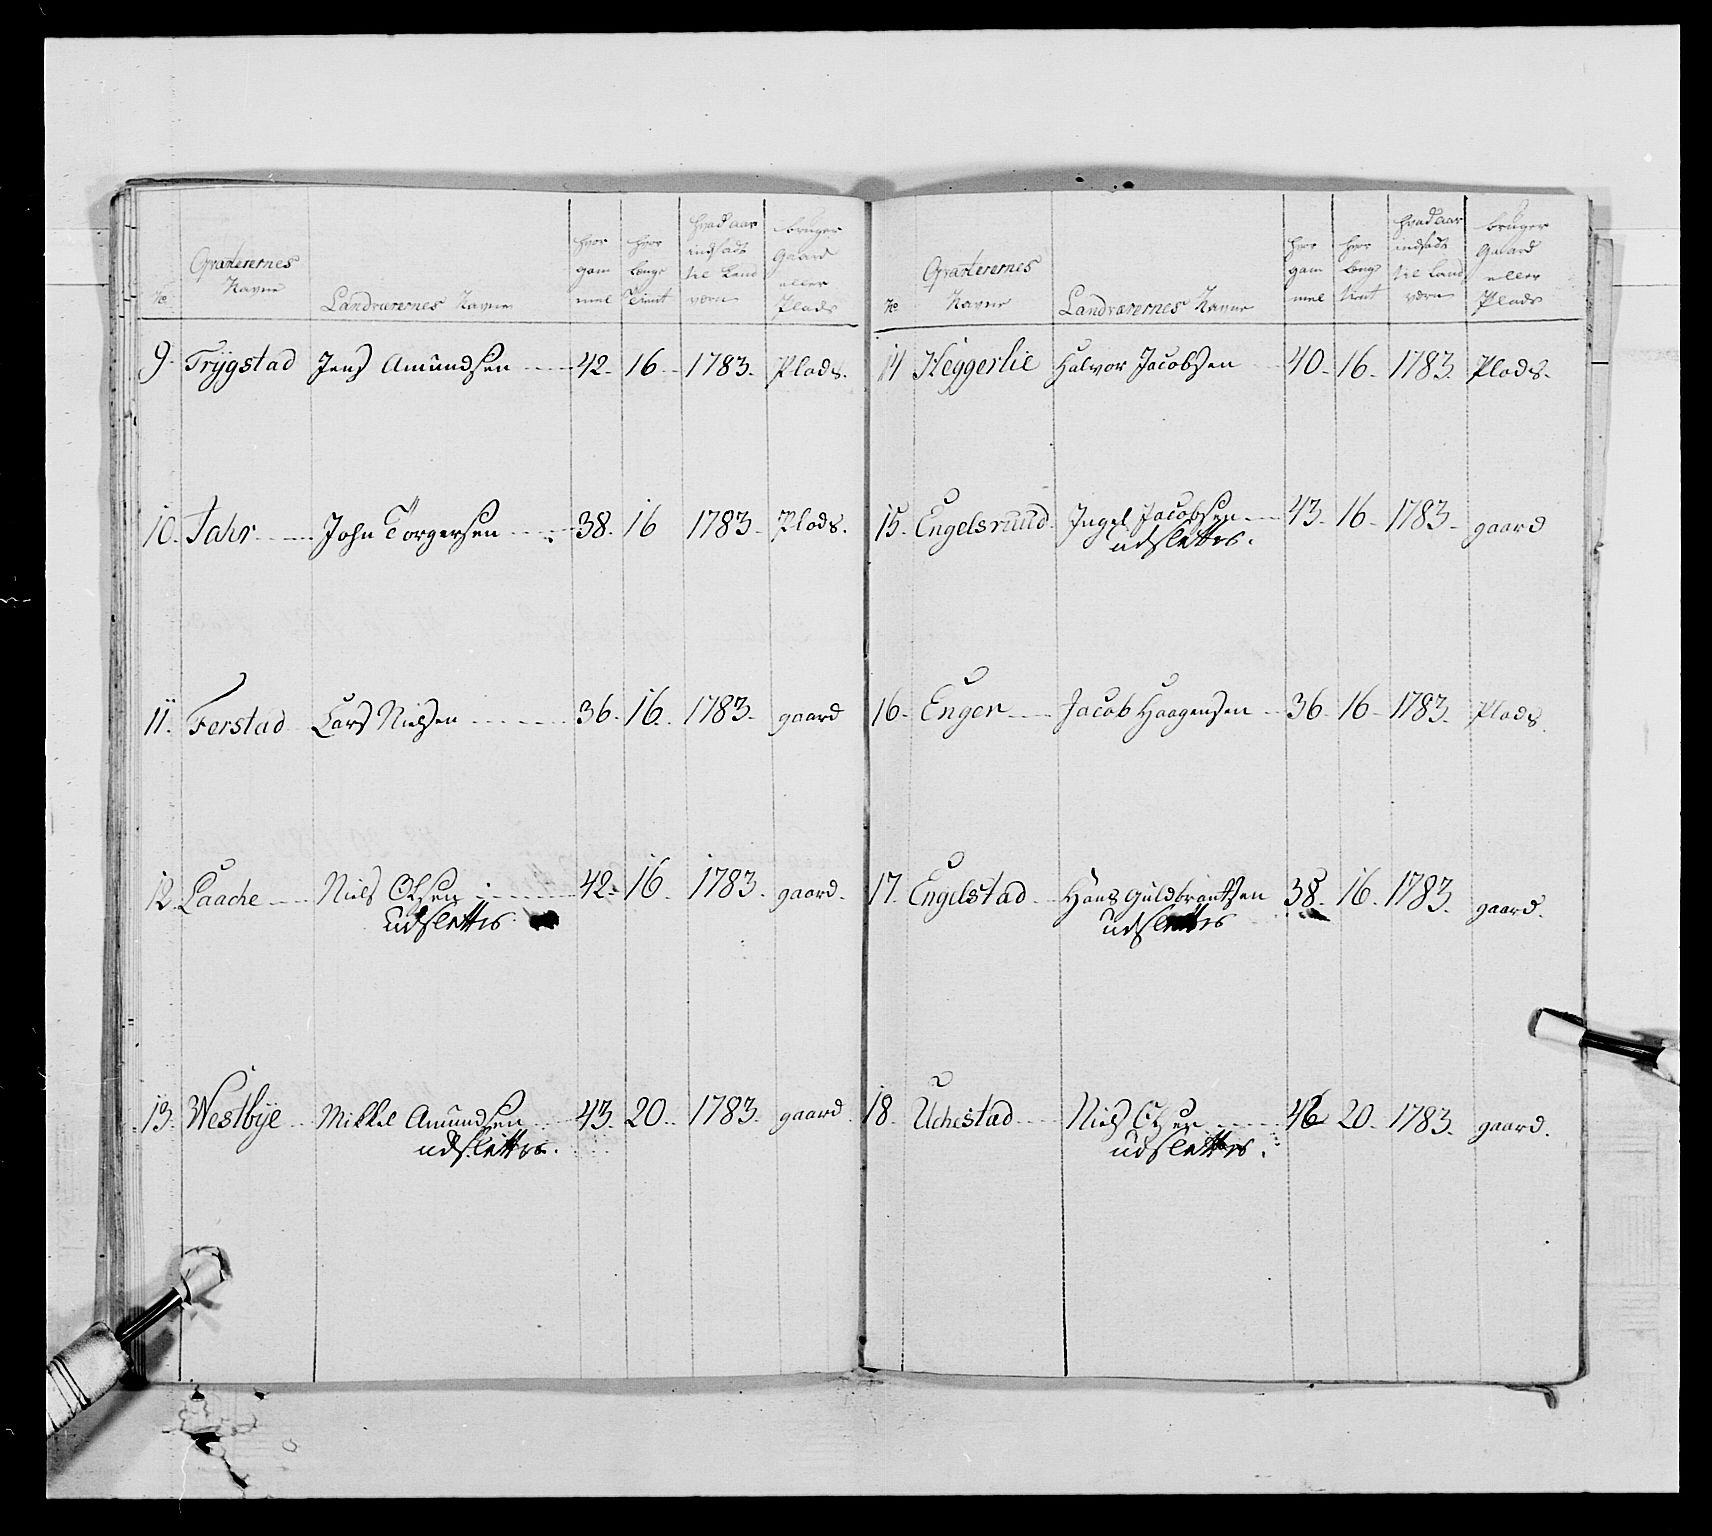 No Qvarterernes Navne Landværernes Navne hvor gammel hvor længe tient hvad aar indsadt til Land værn bruger Gaard eller Plads
9. Trygstad Jens Amundsen 42. 16 1783. Plads.
10. Fahr John Torgersen 38. 16 1783. Plads.
11. Ferstad Lars Nielsen 36. 16. 1783. gaard
12. Laache Niels Olsen 42. 16. 1783. gaard.
udslettes
13. Westbye Mikkel Amundsen 43. 20. 1783. gaard
udslettes.
No Qvarterernes Navne Landværernes Navne hvor gammel hvor længe tient hvad aar indsadt til Land værn bruger Gaard eller Plads
14 Heggerlie Halvor Jacobsen 40. 16. 1783. Plads.
15. Engelsruud Ingel Jacobsen 43. 16. 1783. gaard
udslettes.
16. Enger Jacob Haagensen 36. 16. 1783. Plads.
17. Engelstad Hans Guldbrantsen 38. 16. 1783. gaard.
udslettes
18. Uchestad Niels Olsen 46 20. 1783. gaard.
udslettes.